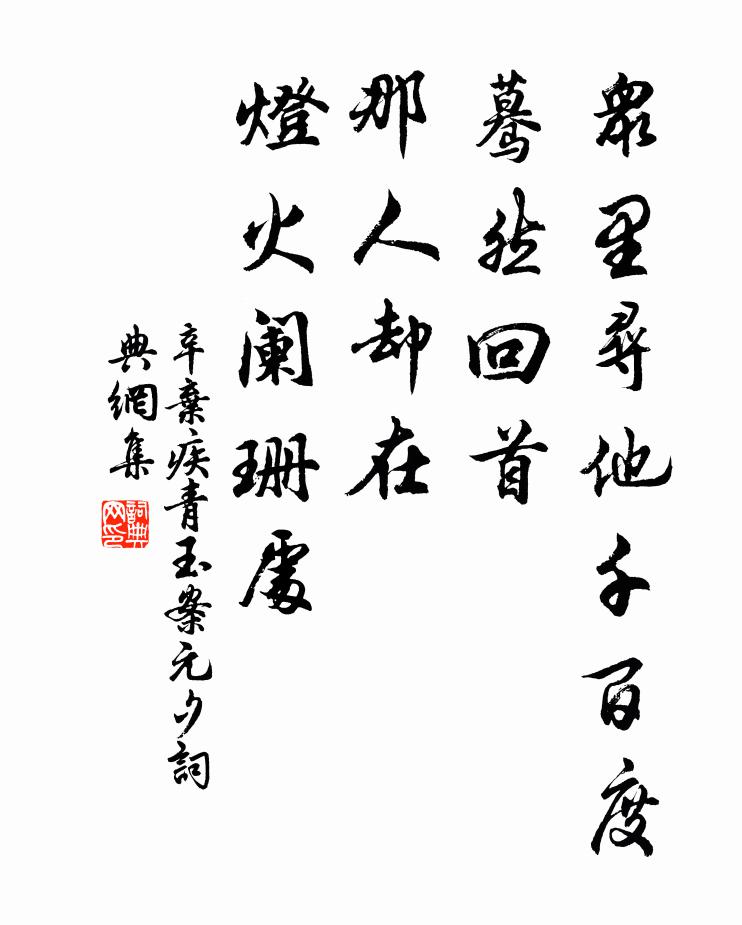 眾里尋他千百度
驀然回首
那人卻在
燈火阑珊處
辛棄疾青玉案元夕詞
典網集
詞典网印